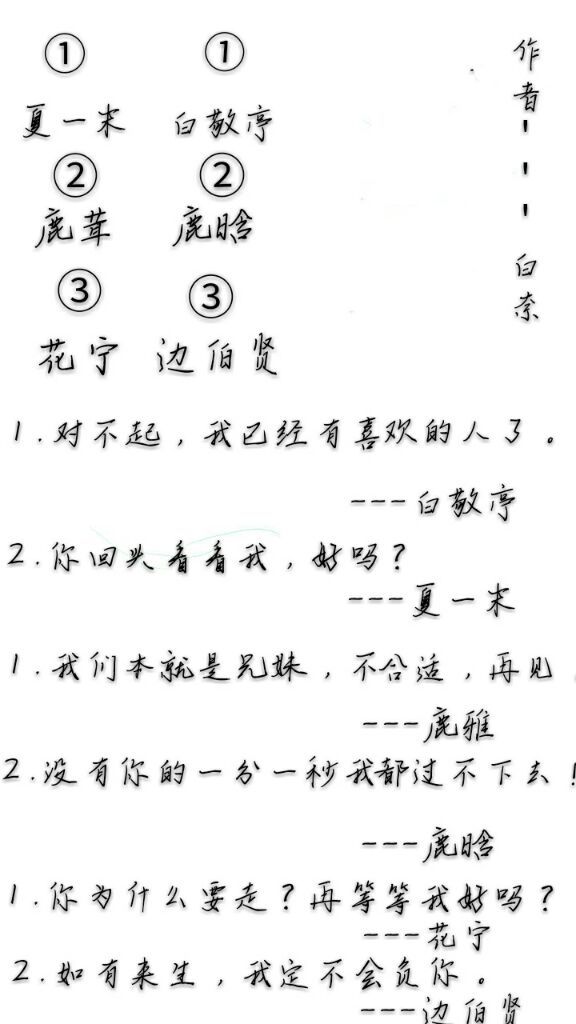 ① ①
夏一末 白敬亭
② ②
鹿茸 鹿晗
③ ③
花宁 边伯贤
作者---白奈
1.对不起，我已经有喜欢的人了。
---白敬亭
2.你回头看看我，好吗？
---夏一末
1.我们本就是兄妹，不合适，再见
---鹿雅
2.没有你的一分一秒我都过不下去！
---鹿晗
1.你为什么要走？再等等我好吗？
---花宁
2.如有来生，我定不会负你。
---边伯贤